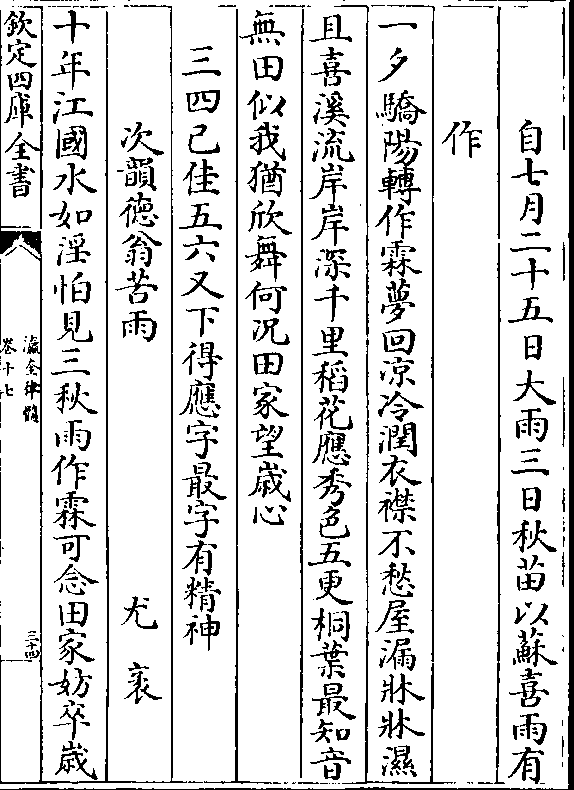 自七月二十五日大雨三日秋苗以蘇喜雨有
作
一夕驕陽轉作霖夢回凉冷潤衣襟不愁屋漏牀牀濕
且喜溪流岸岸深千里稻花應秀色五更桐葉最知音
無田似我猶欣舞何况田家望歲心
三四已佳五六又下得應字最字有精神
次韻德翁苦雨 尤袤
十年江國水如淫怕見三秋雨作霖可念田家妨卒歲
欽定四庫全書
瀛奎律髓
卷十七
三十四